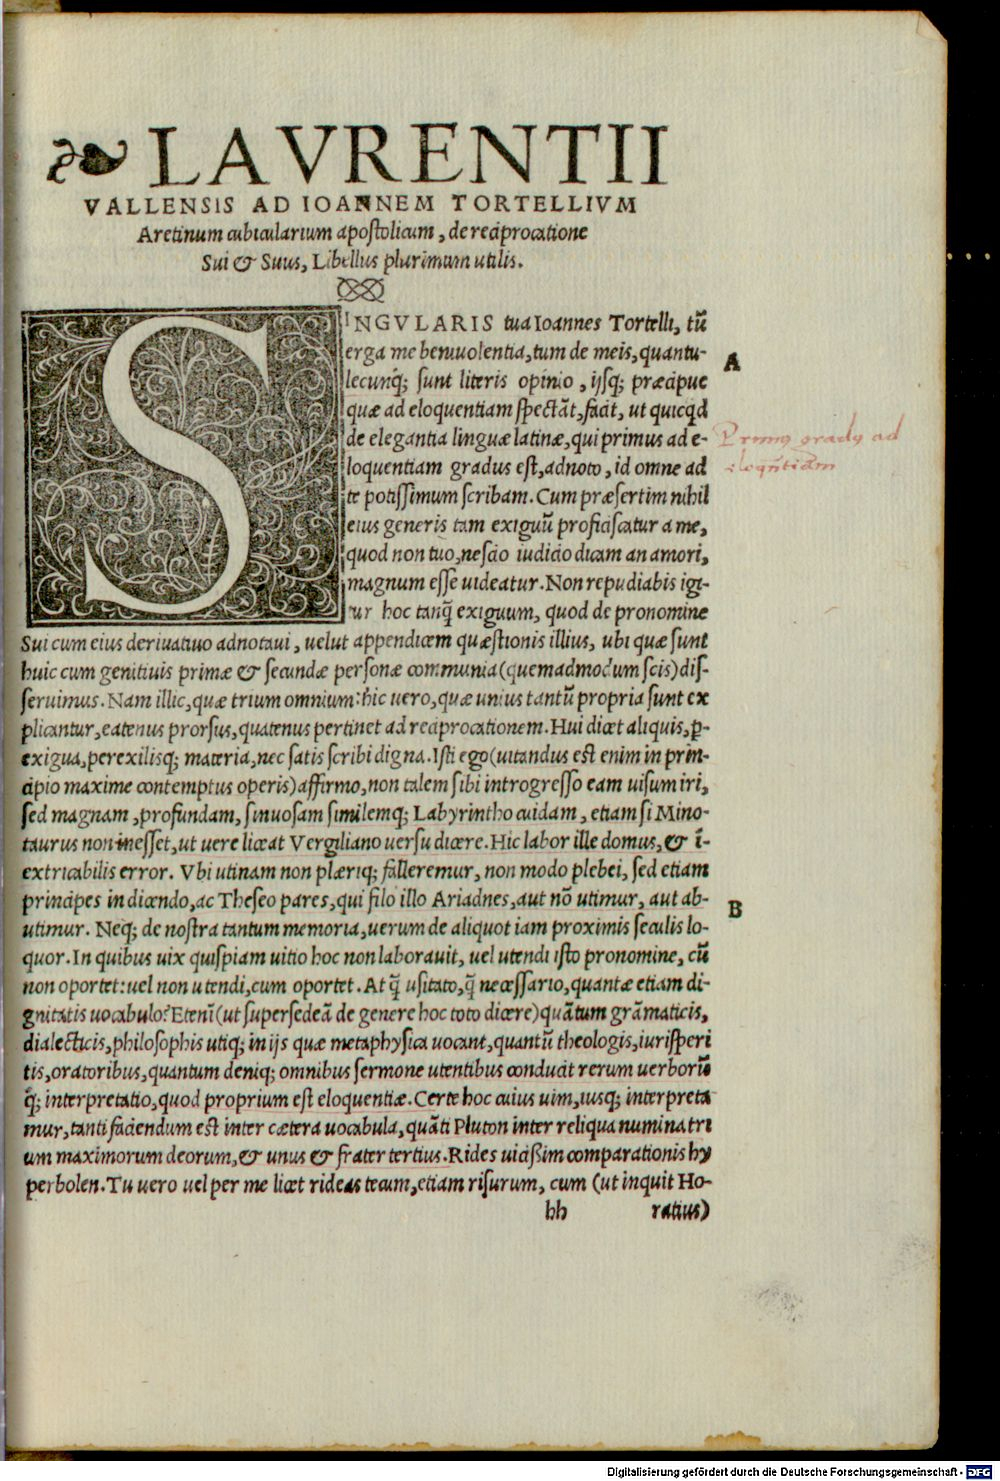 ❧ LAVRENTII
VALLENSIS AD IOANNEM TORTELLIVM
Aretinum cubicularium apostolicum, de reciprocatione
Sui & Suus, Libellus plurimum utilis.
SINGVLARIS tua Ioannes Tortelli, tū
erga me beniuolentia, tum de meis, quantu-
lecunq; sunt literis opinio, ijsq; præcipue
quæ ad eloquentiam spectāt, facit, ut quicqd
de elegantia linguæ latinæ, qui primus ad e-
loquentiam gradus est, adnoto, id omne ad
te potissimum scribam. Cum præsertim nihil
eius generis tam exiguū proficiscatur a me,
quod non tuo, nescio iudicio dicam an amori,
magnum esse uideatur. Non repudiabis igi-
tur hoc tanq̄ exiguum, quod de pronomine
Sui cum eius deriuatiuo adnotaui, uelut appendicem quæstionis illius, ubi quæ sunt
huic cum genitiuis primæ & secundæ personæ communia (quemadmodum scis) dis-
seruimus. Nam illic, quæ trium omnium: hic uero, quæ unius tantū propria sunt ex
plicantur, eatenus prorsus, quatenus pertinet ad reciprocationem. Hui dicet aliquis, p̱-
exigua, perexilisq; materia, nec satis scribi digna. Isti ego (uitandus est enim in prin-
cipio maxime contemptus operis) affirmo, non talem sibi introgresso eam uisum iri,
sed magnam, profundam, sinuosam similemq; Labyrintho cuidam, etiam si Mino-
taurus non inesset, ut uere liceat Vergiliano uersu dicere. Hic labor ille domus, & ī-
extricabilis error. Vbi utinam non plæriq; falleremur, non modo plebei, sed etiam
principes in dicendo, ac Theseo pares, qui filo illo Ariadnes, aut nō utimur, aut ab-
utimur. Neq; de nostra tantum memoria, uerum de aliquot iam proximis seculis lo-
quor. In quibus uix quispiam uitio hoc non laborauit, uel utendi isto pronomine, cū
non oportet: uel non utendi, cum oportet. At q̄ usitato, q̄ necessario, quantæ etiam di-
gnitatis uocabulo? Etenī (ut supersedeā de genere hoc toto dicere) quātum grāmaticis,
dialecticis, philosophis utiq; in ijs quæ metaphysica uocant, quantū theologis, iurisperi
tis, oratoribus, quantum deniq; omnibus sermone utentibus conducit rerum uerborū
q̄; interpretatio, quod proprium est eloquentiæ. Certe hoc cuius uim, iusq; interpreta
mur, tanti faciendum est inter cætera uocabula, quāti Pluton inter reliqua numina tri
um maximorum deorum, & unus & frater tertius. Rides uicissim comparationis hy
perbolen. Tu uero uel per me licet rideas tecum, etiam risurum, cum (ut inquit Ho-
hh ratius)
A
Primus gradus ad
eloquentiam
B
Digitalisierung gefördert durch die Deutsche Forschungsgemeinschaft - DFG